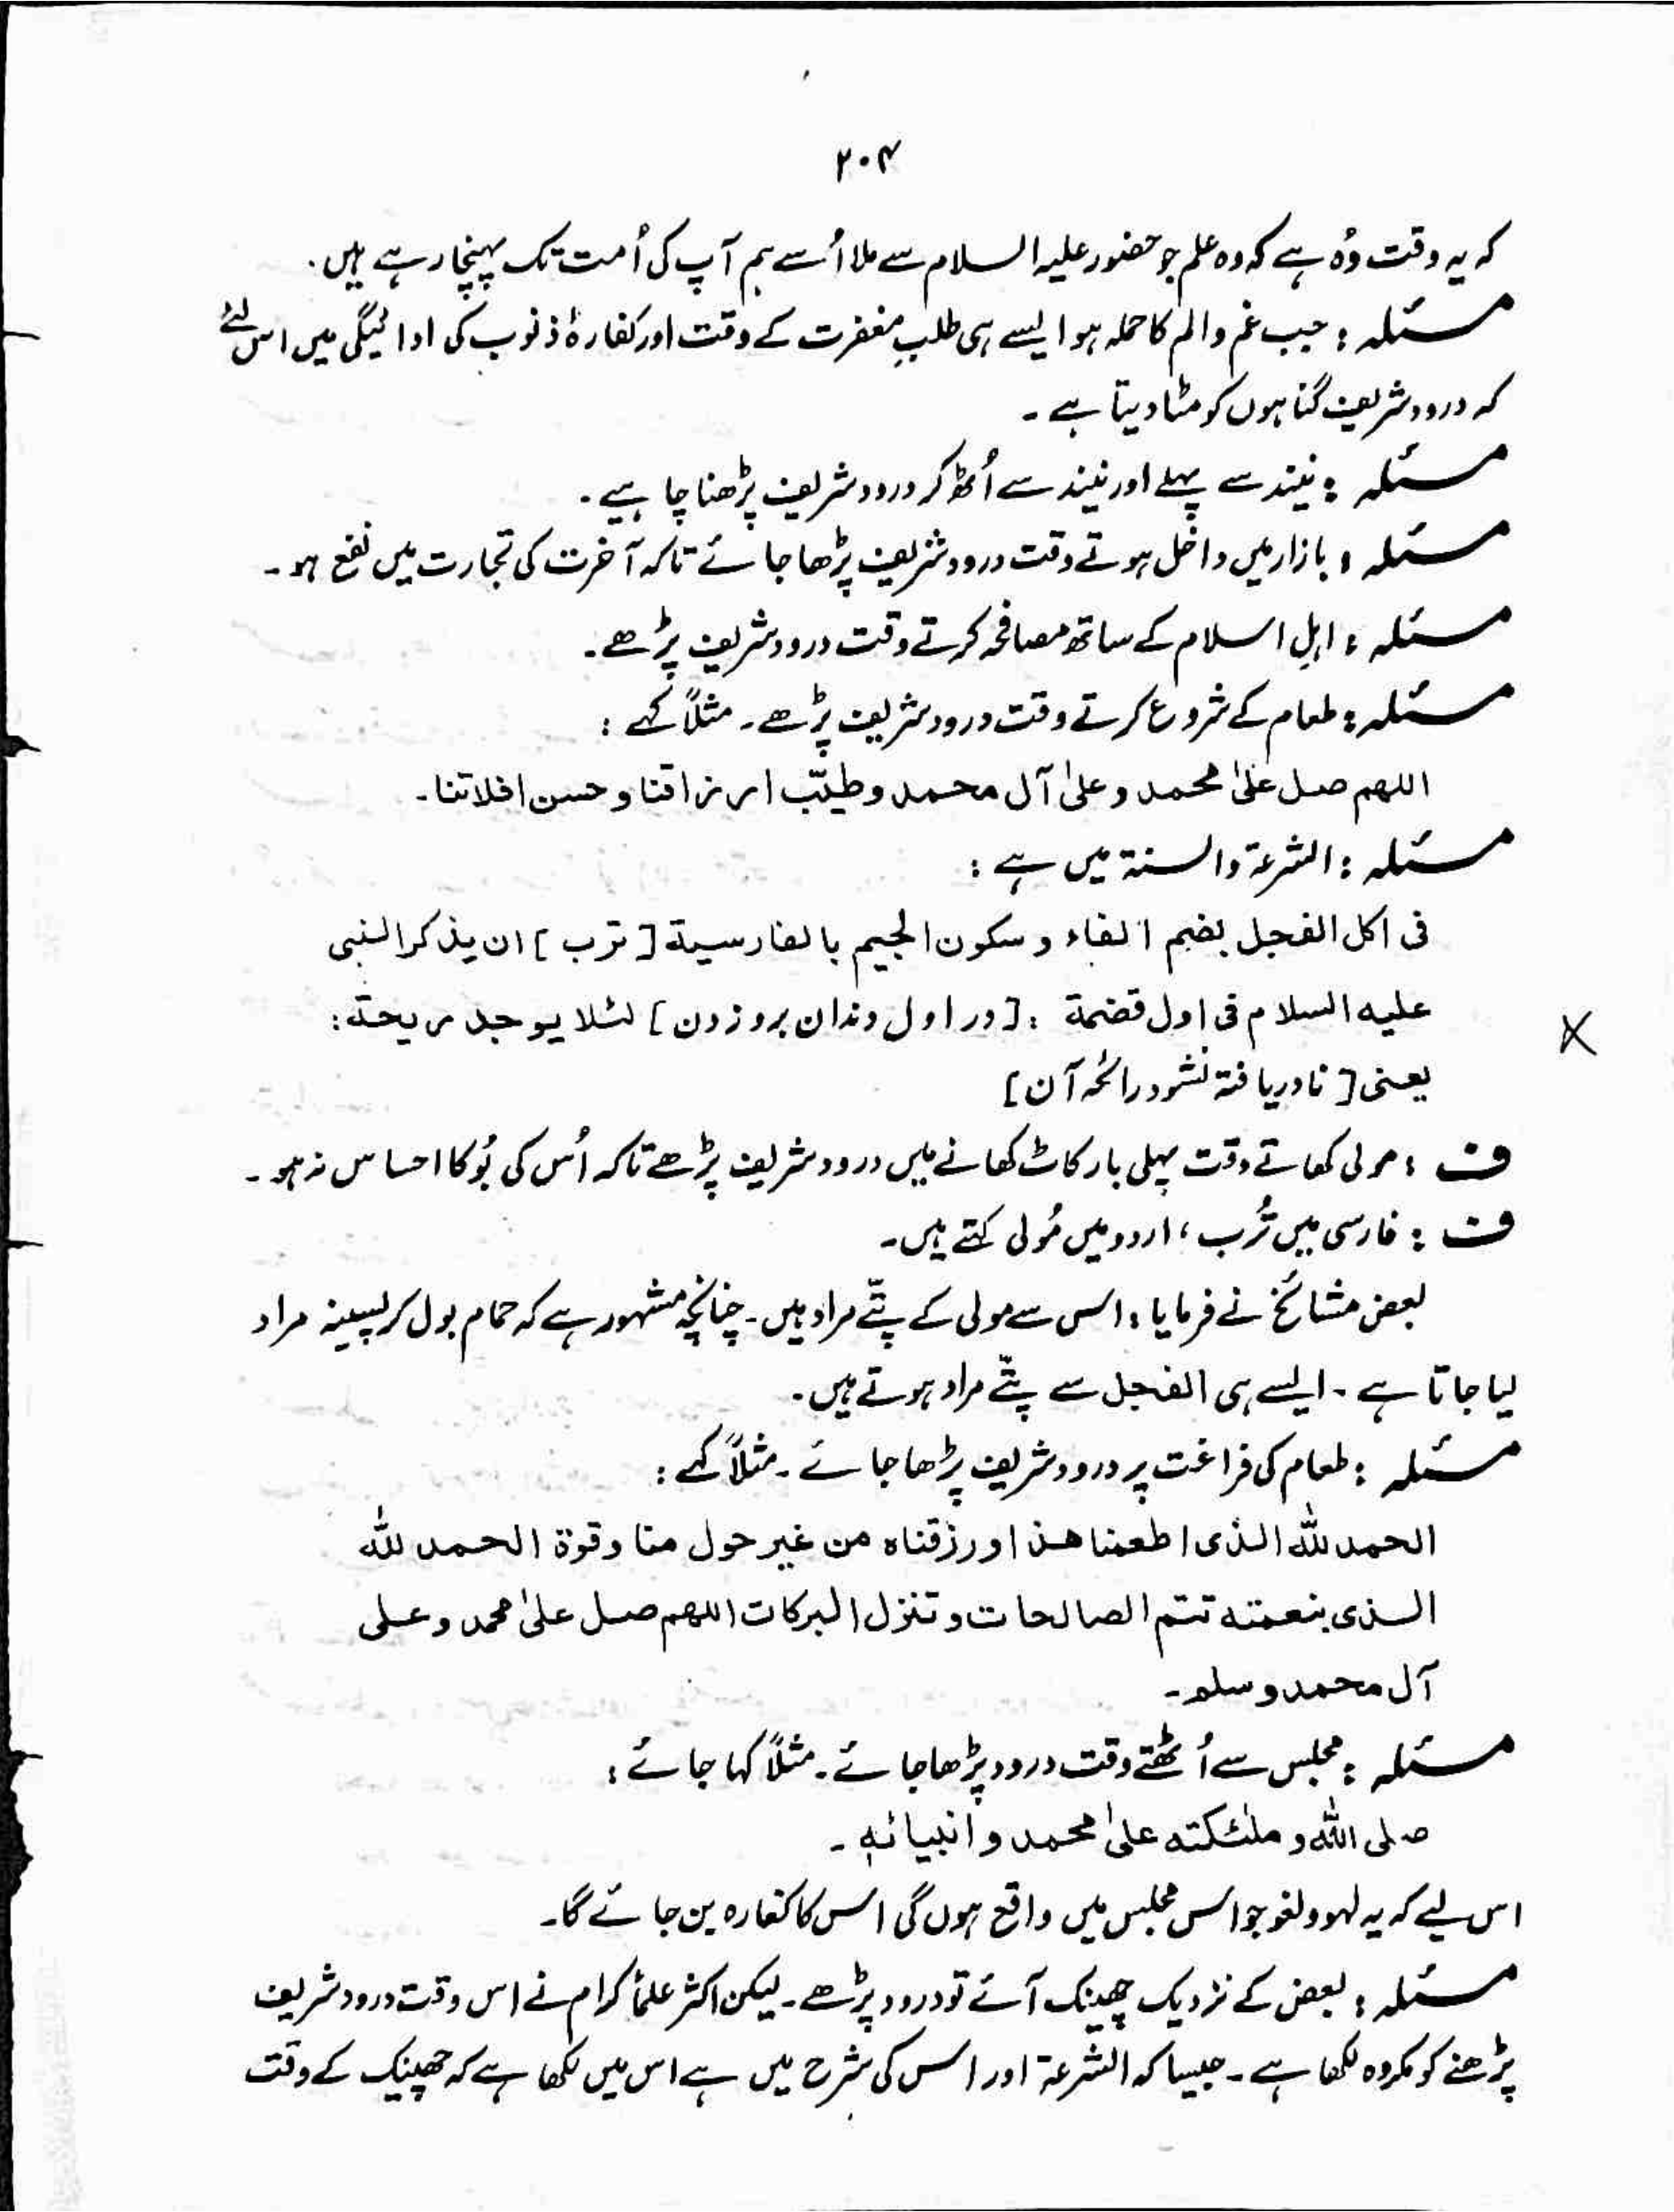 ۲۰۴
کہ یہ وقت وُہ ہے کہ وہ علم جو حضور علیہ السلام سے ملا اُسے ہم آپ کی اُمت تک پہنچا رہے ہیں۔
مسئلہ : جب غم والم کا حملہ ہو ایسے ہی طلبِ مغفرت کے وقت اور کفارۂ ذنوب کی ادائیگی میں اس لئے
کہ درود شریف گناہوں کو مٹا دیتا ہے ۔
مسئلہ : نیند سے پہلے اور نیند سے اُٹھ کر درود شریف پڑھنا چاہیے ۔
مسئلہ : بازار میں داخل ہوتے وقت درود شریف پڑھا جائے تاکہ آخرت کی تجارت میں نفع ہو ۔
مسئلہ : اہلِ اسلام کے ساتھ مصافحہ کرتے وقت درود شریف پڑھے ۔
مسئلہ : طعام کے شروع کرتے وقت درود شریف پڑھے ۔ مثلاً کہے :
اللهم صل علیٰ محمد و علیٰ آل محمد و طیّب ارزاقنا و حسن اخلاقنا ۔
مسئلہ : الشرعۃ والسنۃ میں ہے :
فی اکل الفجل بضم الفاء و سکون الجیم بالفارسیة [ ترب ] ان یذکر النبی
علیه السلام فی اول قضمة : [ در اول دندان برو زدن ] لئلا یوجد ریحة :
یعنی [ تا دریافتہ نشود رائحہ آن ]
ف : مولی کھاتے وقت پہلی بار کاٹ کھانے میں درود شریف پڑھے تاکہ اُس کی بُو کا احساس نہ ہو ۔
ف : فارسی میں تُرب ، اردو میں مُولی کہتے ہیں ۔
بعض مشائخ نے فرمایا : اس سے مولی کے پتّے مراد ہیں ۔ چنانچہ مشہور ہے کہ حمام بول کر پسینہ مراد
لیا جاتا ہے ۔ ایسے ہی الفجل سے پتّے مراد ہوتے ہیں ۔
مسئلہ : طعام کی فراغت پر درود شریف پڑھا جائے ۔ مثلاً کہے :
الحمد للّٰه الذی اطعمنا هذا و رزقناه من غیر حول منا و قوة الحمد للّٰه
الذی بنعمته تتم الصالحات و تنزل البرکات اللهم صل علیٰ محمد و علی
آل محمد و سلم ۔
مسئلہ : مجلس سے اُٹھتے وقت درود پڑھا جائے ۔ مثلاً کہا جائے :
صلی اللّٰه و ملٰئکته علیٰ محمد و انبیائه ۔
اس لیے کہ یہ لہو و لغو جو اس مجلس میں واقع ہوں گی اس کا کفارہ بن جائے گا ۔
مسئلہ : بعض کے نزدیک چھینک آئے تو درود پڑھے ۔ لیکن اکثر علمأ کرام نے اس وقت درود شریف
پڑھنے کو مکروہ لکھا ہے ۔ جیسا کہ الشرعۃ اور اس کی شرح میں ہے اس میں لکھا ہے کہ چھینک کے وقت